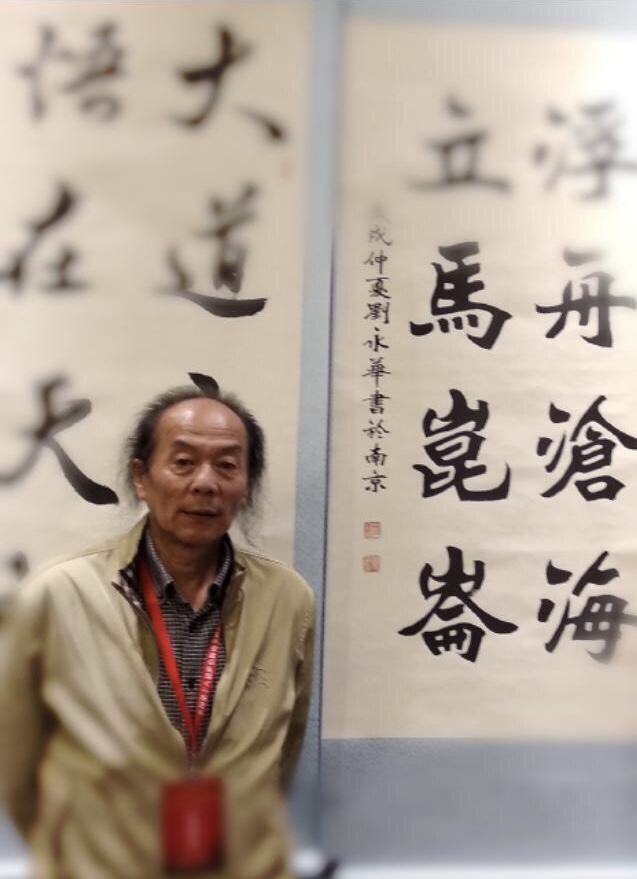 浮舟滄海
立馬崑崙
戌仲夏劉永華書於南京
大道
悟在天